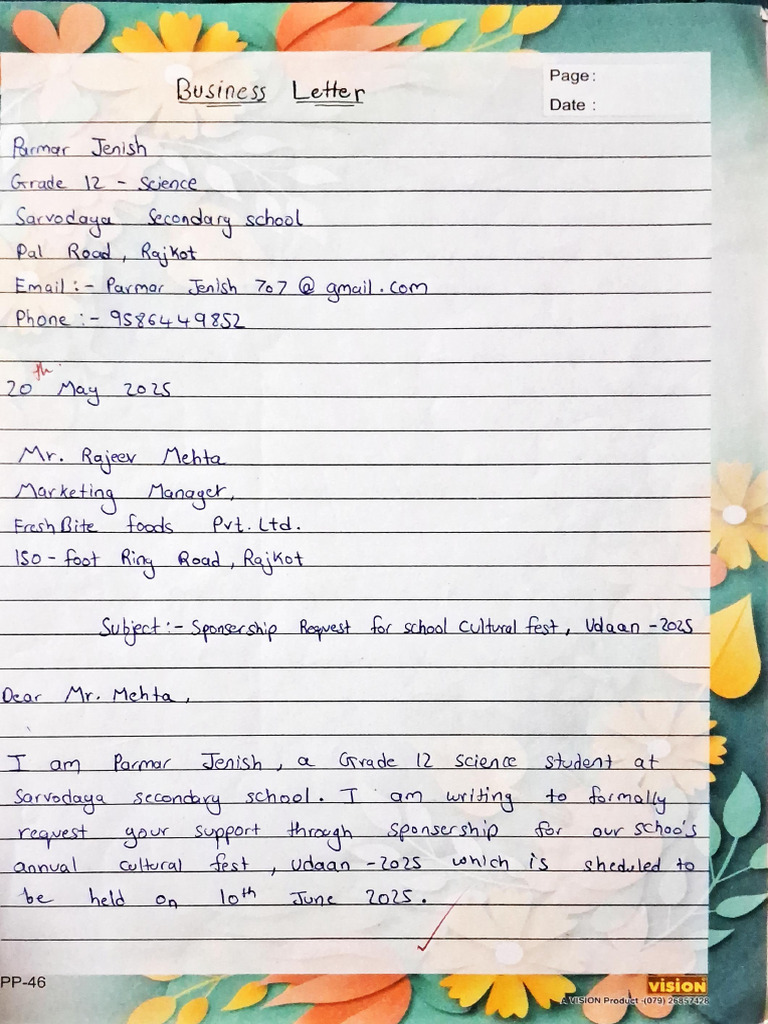 Business Letter
Page:
Date :
Parmar Jenish
Grade 12 - Science
Sarvodaya Secondary school
Pal Road, Rajkot
Email :- Parmar Jenish 707 @ gmail.com
Phone :- 9586449852
20th May 2025
Mr. Rajeev Mehta
Marketing Manager,
FreshBite foods Pvt. Ltd.
150-foot Ring Road, Rajkot
Subject :- Sponsership Request for school cultural fest, Udaan -2025
Dear Mr. Mehta,
I am Parmar Jenish, a Grade 12 science student at
Sarvodaya secondary school. I am writing to formally
request your support through sponsership for our schoo's
annual cultural fest, Udaan -2025 which is sheduled to
be held on 10th June 2025.
PP-46
VISION
A VISION Product -(079) 26857428